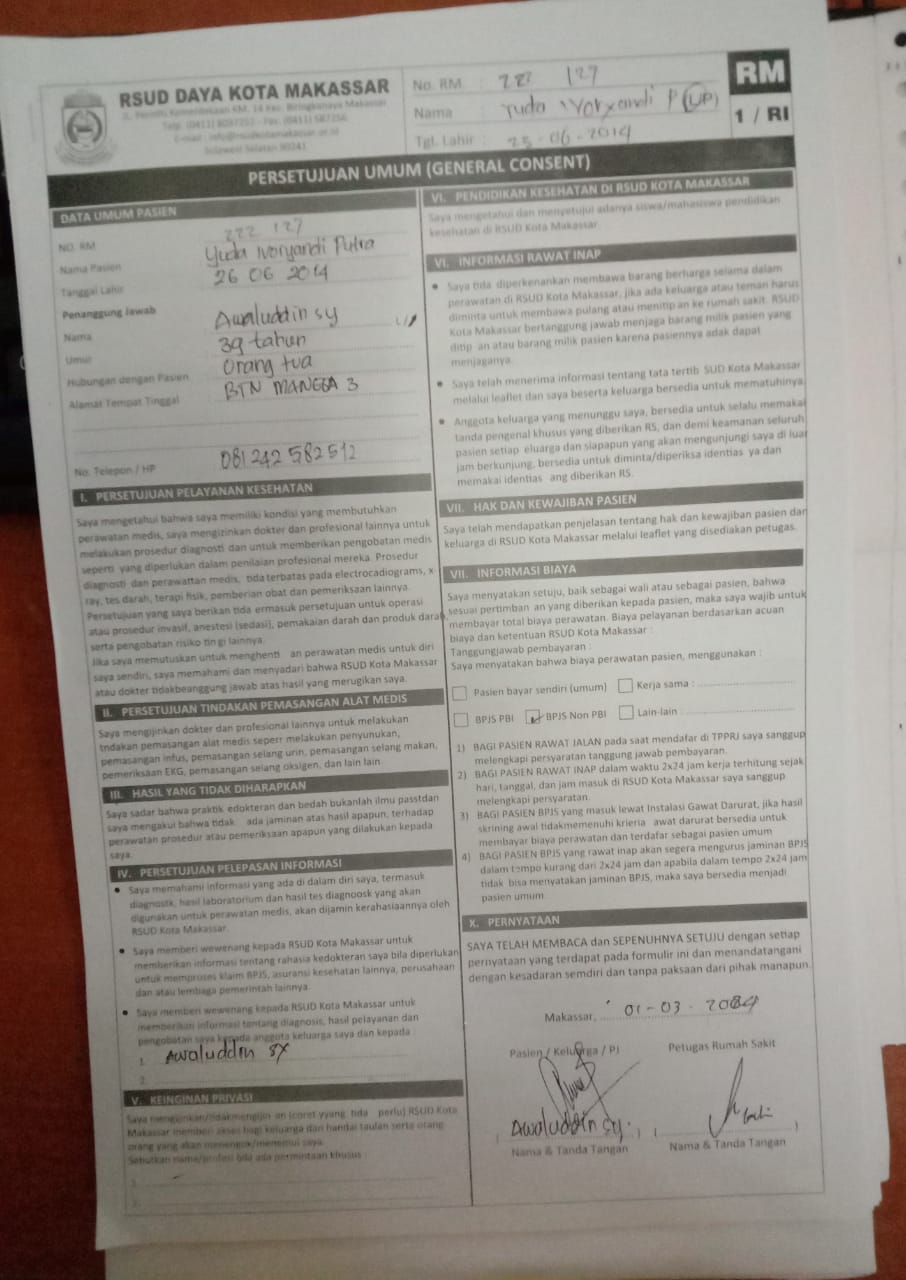 RSUD DAYA KOTA MAKASSAR
Jl. Perintis Kemerdekaan KM. 14 Kec. Biringkanaya Makassar
Sulawesi Selatan 90241
No. RM : 222 127
Nama : Yuda Ivoryandi P (LP)
Tgl. Lahir : -06-2014
RM
1 / RI
PERSETUJUAN UMUM (GENERAL CONSENT)
DATA UMUM PASIEN
NO. RM 222 127
Nama Pasien Yuda Ivoryandi Putra
Tanggal Lahir 26 06 2014
Penanggung Jawab
Nama Awaluddin sy
Umur 39 tahun
Hubungan dengan Pasien Orang tua
Alamat Tempat Tinggal BTN MANGGA 3
No. Telepon / HP 081 242 582 512
I. PERSETUJUAN PELAYANAN KESEHATAN
Saya mengetahui bahwa saya memiliki kondisi yang membutuhkan
perawatan medis, saya mengizinkan dokter dan profesional lainnya untuk
melakukan prosedur diagnosti dan untuk memberikan pengobatan medis
seperti yang diperlukan dalam penilaian profesional mereka. Prosedur
diagnosti dan perawattan medis, tida terbatas pada electrocadiograms, x-
ray, tes darah, terapi fisik, pemberian obat dan pemeriksaan lainnya.
Persetujuan yang saya berikan tida ermasuk persetujuan untuk operasi
atau prosedur invasif, anestesi (sedasi), pemakaian darah dan produk darah
serta pengobatan risiko tin gi lainnya.
Jika saya memutuskan untuk menghenti an perawatan medis untuk diri
saya sendiri, saya memahami dan menyadari bahwa RSUD Kota Makassar
atau dokter tidakbeanggung jawab atas hasil yang merugikan saya.
II. PERSETUJUAN TINDAKAN PEMASANGAN ALAT MEDIS
Saya mengijinkan dokter dan profesional lainnya untuk melakukan
tndakan pemasangan alat medis seperr melakukan penyunukan,
pemasangan infus, pemasangan selang urin, pemasangan selang makan,
pemeriksaan EKG, pemasangan selang oksigen, dan lain lain.
III. HASIL YANG TIDAK DIHARAPKAN
Saya sadar bahwa praktik edokteran dan bedah bukanlah ilmu passtdan
saya mengakui bahwa tidak ada jaminan atas hasil apapun, terhadap
perawatan prosedur atau pemeriksaan apapun yang dilakukan kepada
saya.
IV. PERSETUJUAN PELEPASAN INFORMASI
• Saya memahami informasi yang ada di dalam diri saya, termasuk
diagnostk, hasil laboratorium dan hasil tes diagnoosk yang akan
digunakan untuk perawatan medis, akan dijamin kerahasiaannya oleh
RSUD Kota Makassar.
• Saya memberi wewenang kepada RSUD Kota Makassar untuk
memberikan informasi tentang rahasia kedokteran saya bila diperlukan
untuk memproses klaim BPJS, asuransi kesehatan lainnya, perusahaan
dan atau lembaga pemerintah lainnya.
• Saya memberi wewenang kepada RSUD Kota Makassar untuk
memberikan informasi tentang diagnosis, hasil pelayanan dan
pengobatan saya kepada anggota keluarga saya dan kepada :
1. Awaluddin sy
2.
V. KEINGINAN PRIVASI
Saya mengijinkan/tidakmengijin an (coret yyang tida perlu) RSUD Kota
Makassar memberi akses bagi keluarga dan handai taulan serta orang
orang yang akan menengok/menemui saya.
Sebutkan name/profesi bila ada permintaan khusus :
1.
2.
VI. PENDIDIKAN KESEHATAN DI RSUD KOTA MAKASSAR
Saya mengetahui dan menyetujui adanya siswa/mahasiswa pendidikan
kesehatan di RSUD Kota Makassar
VI. INFORMASI RAWAT INAP
• Saya tida diperkenankan membawa barang berharga selama dalam
perawatan di RSUD Kota Makassar, jika ada keluarga atau teman harus
diminta untuk membawa pulang atau menitip an ke rumah sakit. RSUD
Kota Makassar bertanggung jawab menjaga barang milik pasien yang
ditip an atau barang milik pasien karena pasiennya adak dapat
menjaganya.
• Saya telah menerima informasi tentang tata tertib SUD Kota Makassar
melalui leaflet dan saya beserta keluarga bersedia untuk mematuhinya
• Anggota keluarga yang menunggu saya, bersedia untuk selalu memakai
tanda pengenal khusus yang diberikan RS, dan demi keamanan seluruh
pasien setiap eluarga dan siapapun yang akan mengunjungi saya di luar
jam berkunjung, bersedia untuk diminta/diperiksa identias ya dan
memakai identias ang diberikan RS.
VII. HAK DAN KEWAJIBAN PASIEN
Saya telah mendapatkan penjelasan tentang hak dan kewajiban pasien dan
keluarga di RSUD Kota Makassar melalui leaflet yang disediakan petugas.
VII. INFORMASI BIAYA
Saya menyatakan setuju, baik sebagai wali atau sebagai pasien, bahwa
sesuai pertimban an yang diberikan kepada pasien, maka saya wajib untuk
membayar total biaya perawatan. Biaya pelayanan berdasarkan acuan
biaya dan ketentuan RSUD Kota Makassar :
Tanggungjawab pembayaran :
Saya menyatakan bahwa biaya perawatan pasien, menggunakan :
Pasien bayar sendiri (umum) Kerja sama :
BPJS PBI ✓ BPJS Non PBI Lain-lain :
1) BAGI PASIEN RAWAT JALAN pada saat mendafar di TPPRJ saya sanggup
melengkapi persyaratan tanggung jawab pembayaran.
2) BAGI PASIEN RAWAT INAP dalam waktu 2x24 jam kerja terhitung sejak
hari, tanggal, dan jam masuk di RSUD Kota Makassar saya sanggup
melengkapi persyaratan.
3) BAGI PASIEN BPJS yang masuk lewat Instalasi Gawat Darurat, jika hasil
skrining awal tidakmemenuhi krieria awat darurat bersedia untuk
membayar biaya perawatan dan terdafar sebagai pasien umum
4) BAGI PASIEN BPJS yang rawat inap akan segera mengurus jaminan BPJS
dalam tempo kurang dari 2x24 jam dan apabila dalam tempo 2x24 jam
tidak bisa menyatakan jaminan BPJS, maka saya bersedia menjadi
pasien umum.
X. PERNYATAAN
SAYA TELAH MEMBACA dan SEPENUHNYA SETUJU dengan setiap
pernyataan yang terdapat pada formulir ini dan menandatangani
dengan kesadaran semdiri dan tanpa paksaan dari pihak manapun.
Makassar, 01-03-
Pasien / Keluarga / PJ Petugas Rumah Sakit
( Awaluddin sy. ) ( )
Nama & Tanda Tangan Nama & Tanda Tangan